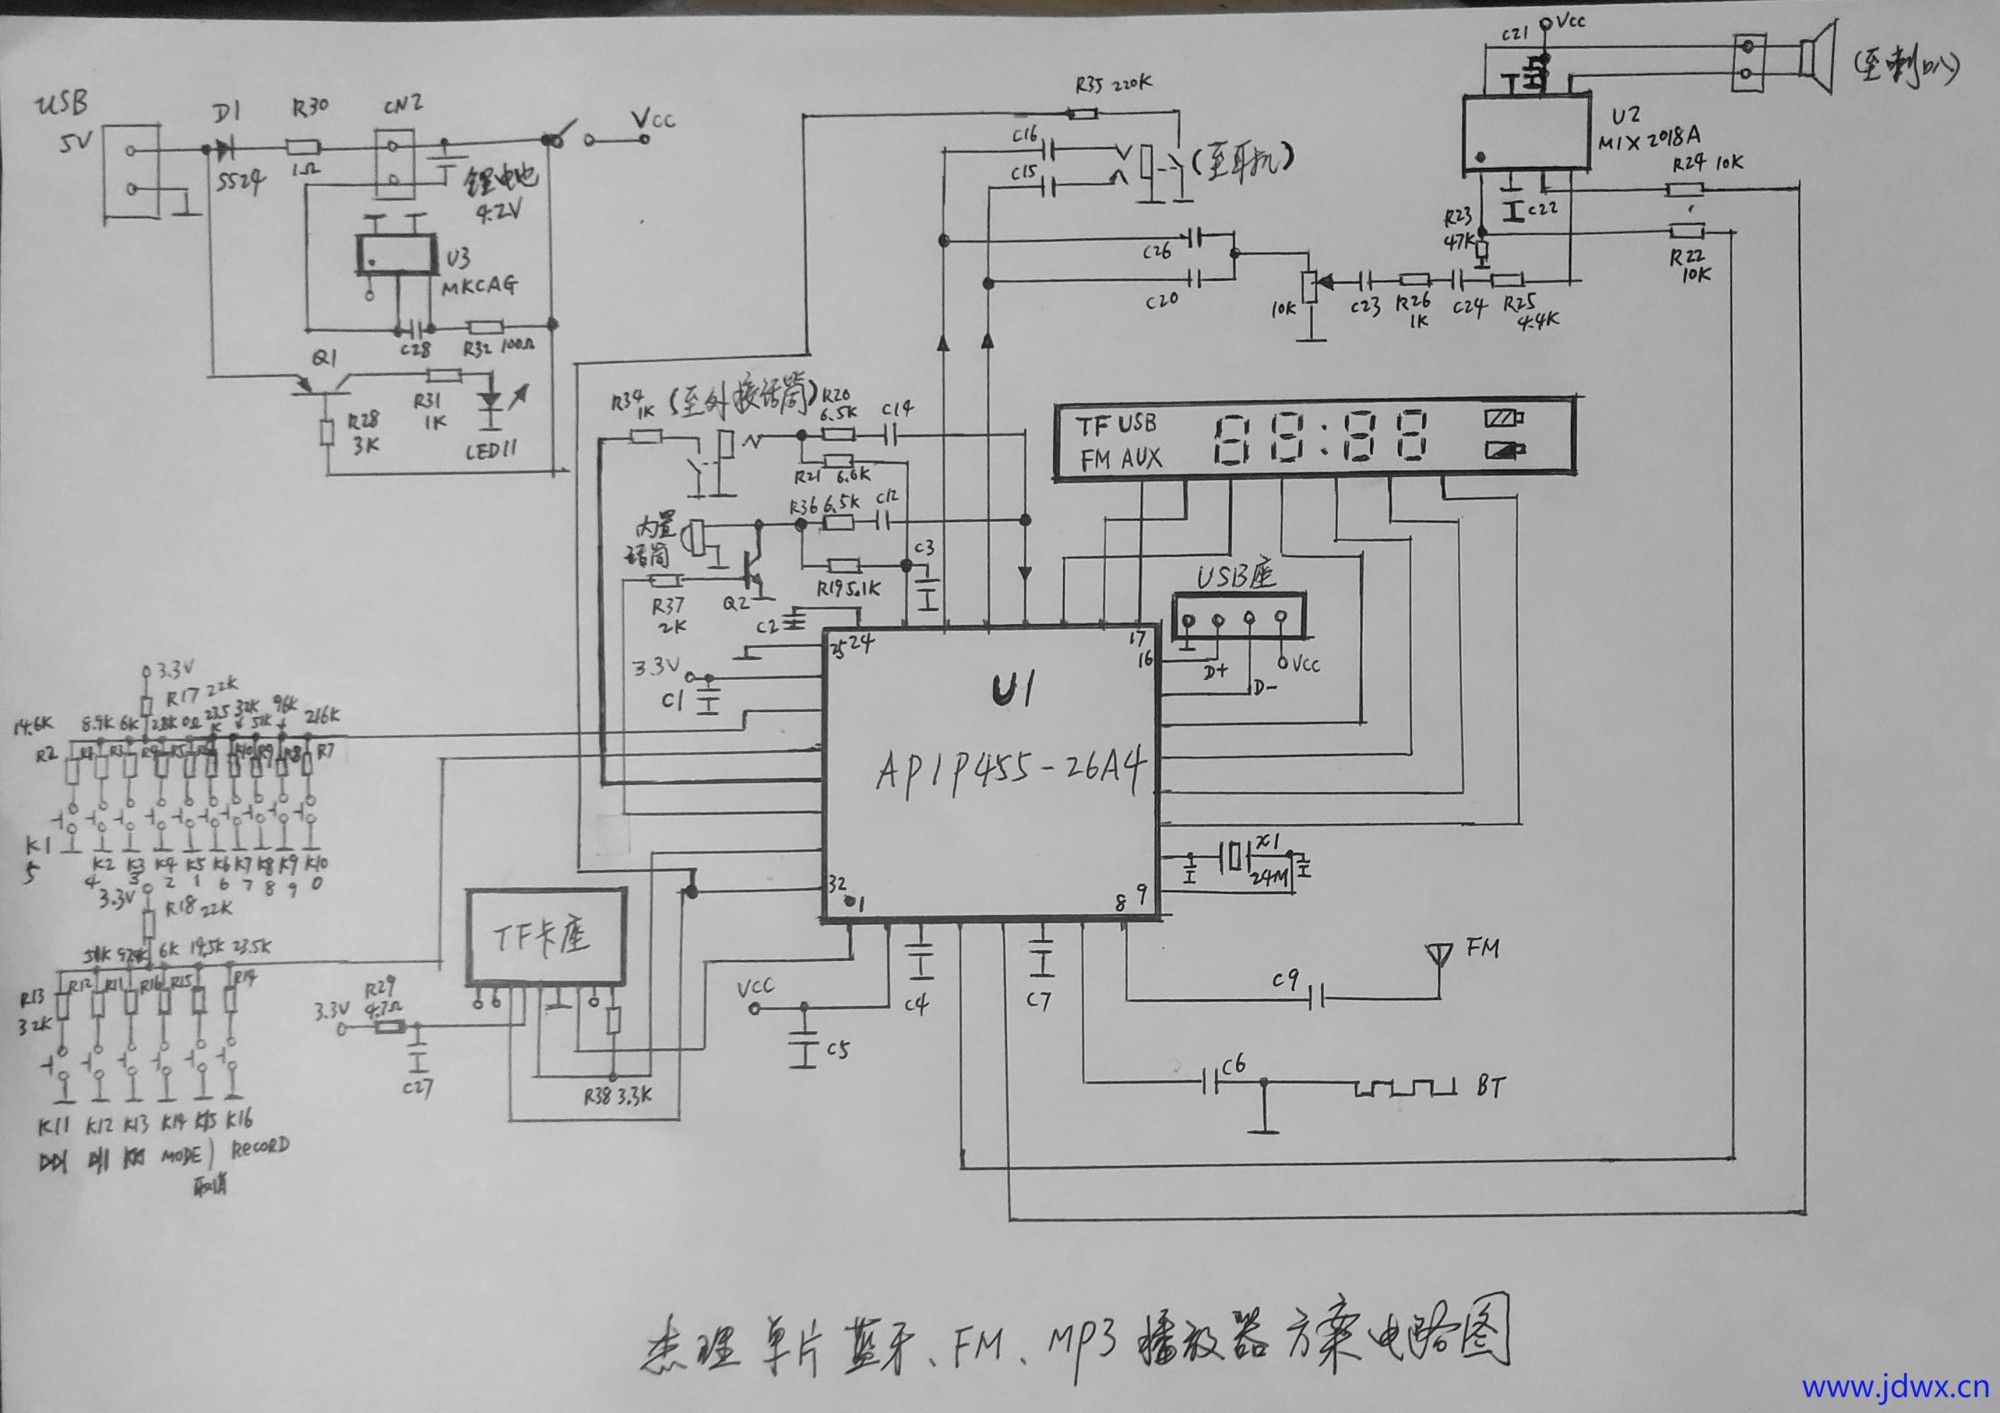 USB
5V
D1
SS24
R30
1Ω
CN2
锂电池
4.2V
VCC
U3
MKCAG
C28
R32 100Ω
Q1
R28
3K
R31
1K
LED11
R35 220K
C16
C15
(至耳机)
C26
C20
10K
C23
R26
1K
C24
R25
4.4K
C21
VCC
(至喇叭)
U2
MIX2018A
R24 10K
C22
R23
47K
R22
10K
R34
1K
(至外接话筒)
R20
6.5K
C14
R21 6.6K
R36 6.5K
C12
内置
话筒
R19 5.1K
C3
R37
2K
Q2
C2
TF USB
FM AUX
88:88
USB座
D+
D-
VCC
3.3V
C1
25 24
17
16
U1
AP1P455-26A4
32
1
8 9
X1
24M
3.3V
R17 22K
14.6K
8.9K 6K
32K
96K
51K
216K
R2
R3
R10
R9
R8
R7
K1
K2
K3
K4
K5
K6
K7
K8
K9
K10
5
4
3
2
1
6
7
8
9
0
3.3V
R18 22K
6K
19.5K
23.5K
R13
R12
R11
R16
R15
R14
32K
K11
K12
K13
K14
K15
K16
MODE
RECORD
TF卡座
3.3V
R29
4.7Ω
C27
R38 3.3K
VCC
C5
C4
C7
C9
FM
C6
BT
杰理单片蓝牙、FM、MP3播放器方案电路图
www.jdwx.cn